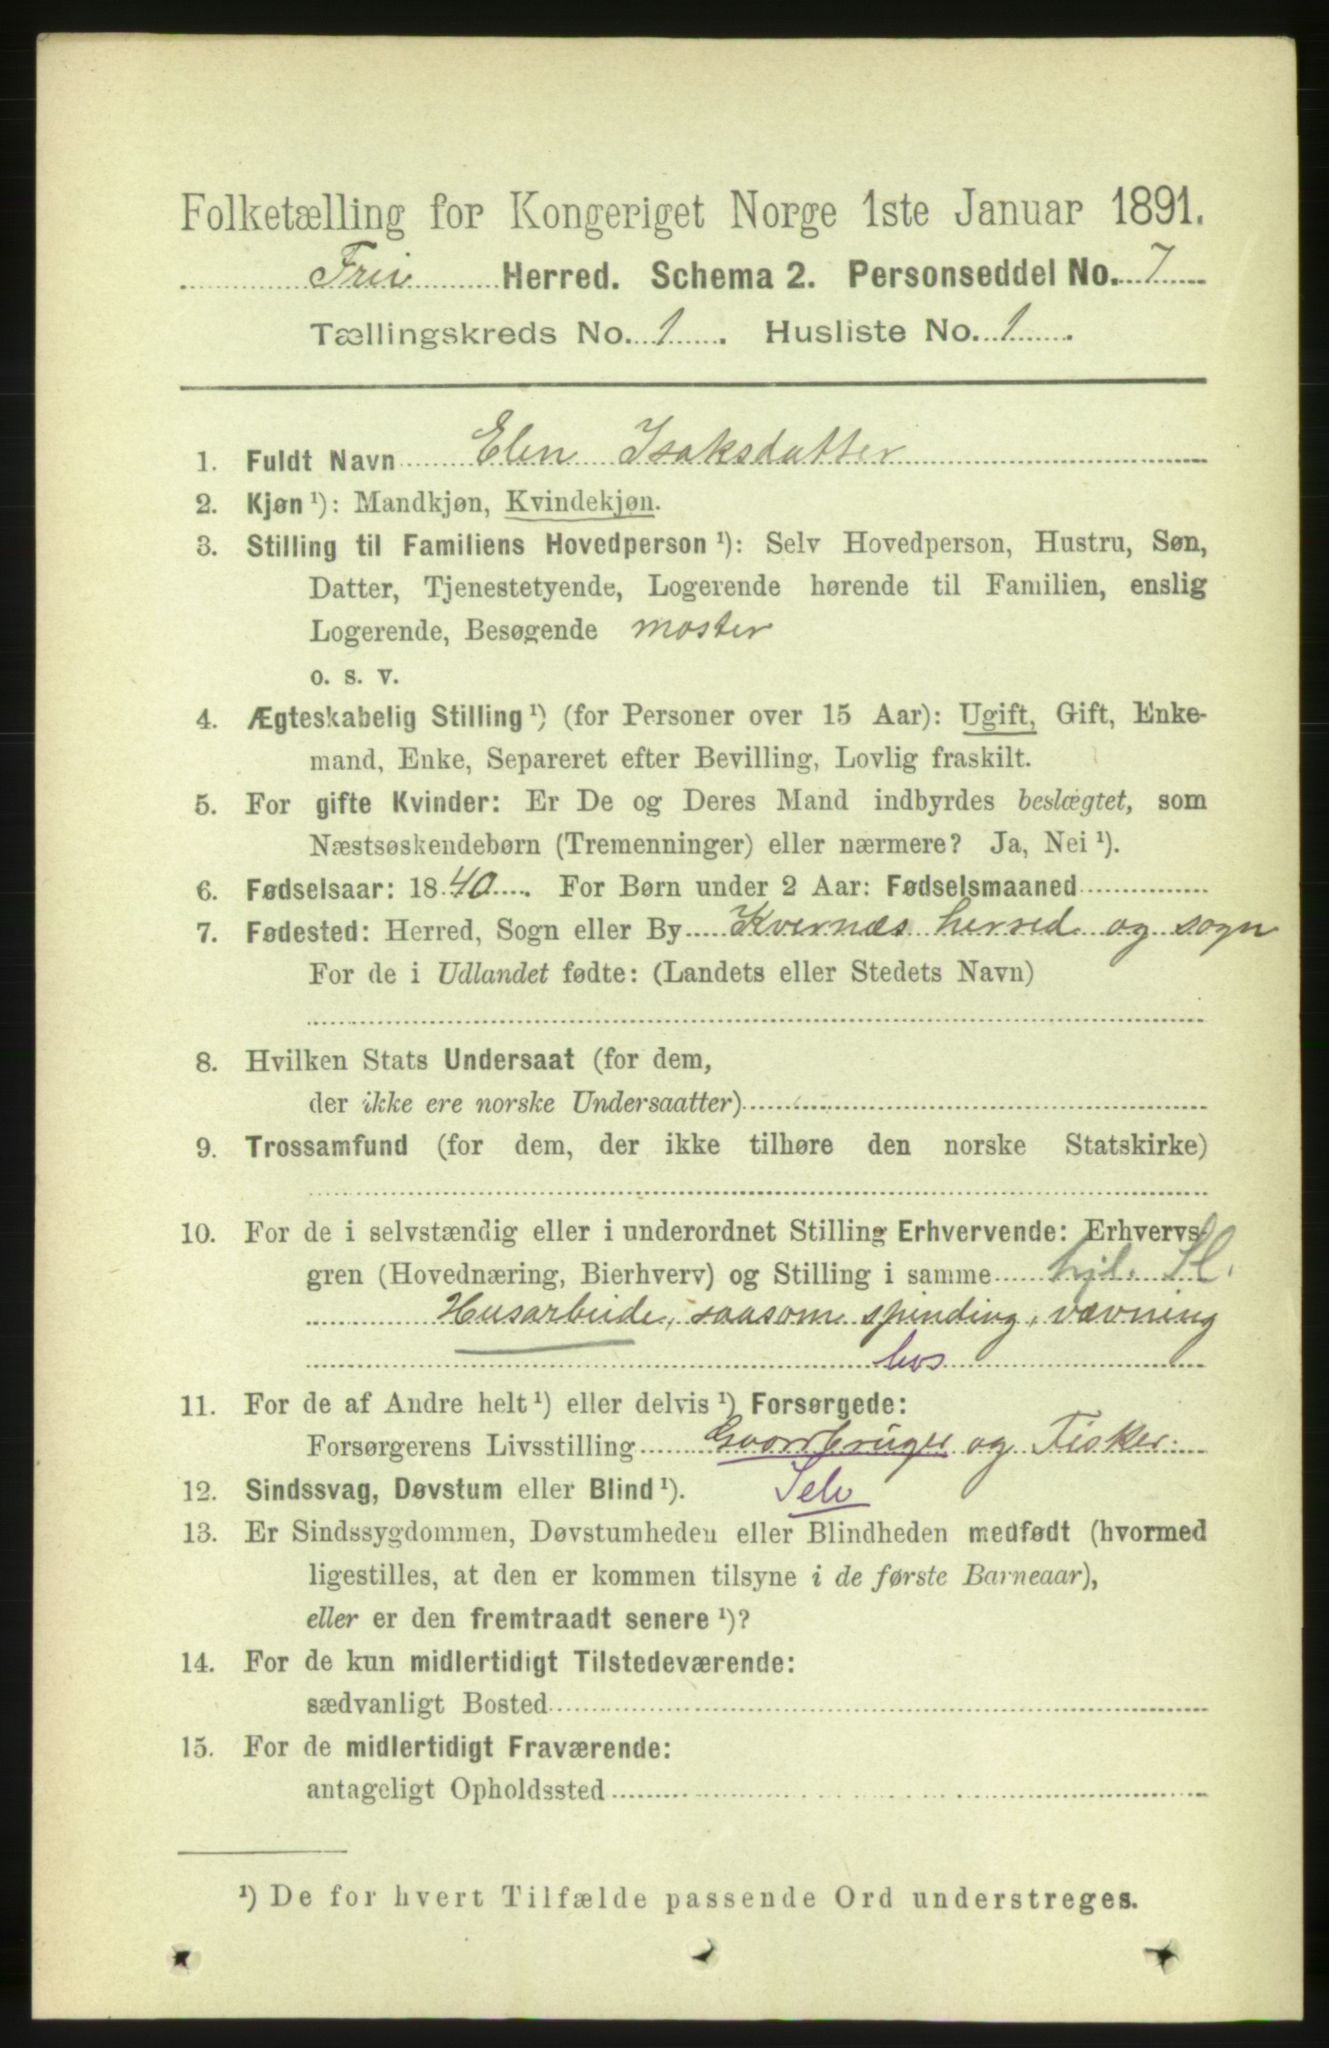 Folketælling for Kongeriget Norge 1ste Januar 1891.
Frei Herred. Schema 2. Personseddel No. 7
Tællingskreds No. 1. Husliste No. 1.
1. Fuldt Navn Elen Isaksdatter
2. Kjøn ¹): Mandkjøn, Kvindekjøn.
3. Stilling til Familiens Hovedperson ¹): Selv Hovedperson, Hustru, Søn,
Datter, Tjenestetyende, Logerende hørende til Familien, enslig
Logerende, Besøgende moster
o. s. v.
4. Ægteskabelig Stilling ¹) (for Personer over 15 Aar): Ugift, Gift, Enke-
mand, Enke, Separeret efter Bevilling, Lovlig fraskilt.
5. For gifte Kvinder: Er De og Deres Mand indbyrdes beslægtet, som
Næstsøskendebørn (Tremenninger) eller nærmere? Ja, Nei ¹).
6. Fødselsaar: 1840. For Børn under 2 Aar: Fødselsmaaned
7. Fødested: Herred, Sogn eller By Kvernæs herred og sogn
For de i Udlandet fødte: (Landets eller Stedets Navn)
8. Hvilken Stats Undersaat (for dem,
der ikke ere norske Undersaatter)
9. Trossamfund (for dem, der ikke tilhøre den norske Statskirke)
10. For de i selvstændig eller i underordnet Stilling Erhvervende: Erhvervs-
gren (Hovednæring, Bierhverv) og Stilling i samme hjl. Sl.
Husarbeide, saasom spinding, vævning
hos
11. For de af Andre helt ¹) eller delvis ¹) Forsørgede:
Forsørgerens Livsstilling Gaardbruger og Fisker.
12. Sindssvag, Døvstum eller Blind ¹). Selv
13. Er Sindssygdommen, Døvstumheden eller Blindheden medfødt (hvormed
ligestilles, at den er kommen tilsyne i de første Barneaar),
eller er den fremtraadt senere ¹)?
14. For de kun midlertidigt Tilstedeværende:
sædvanligt Bosted
15. For de midlertidigt Fraværende:
antageligt Opholdssted
¹) De for hvert Tilfælde passende Ord understreges.